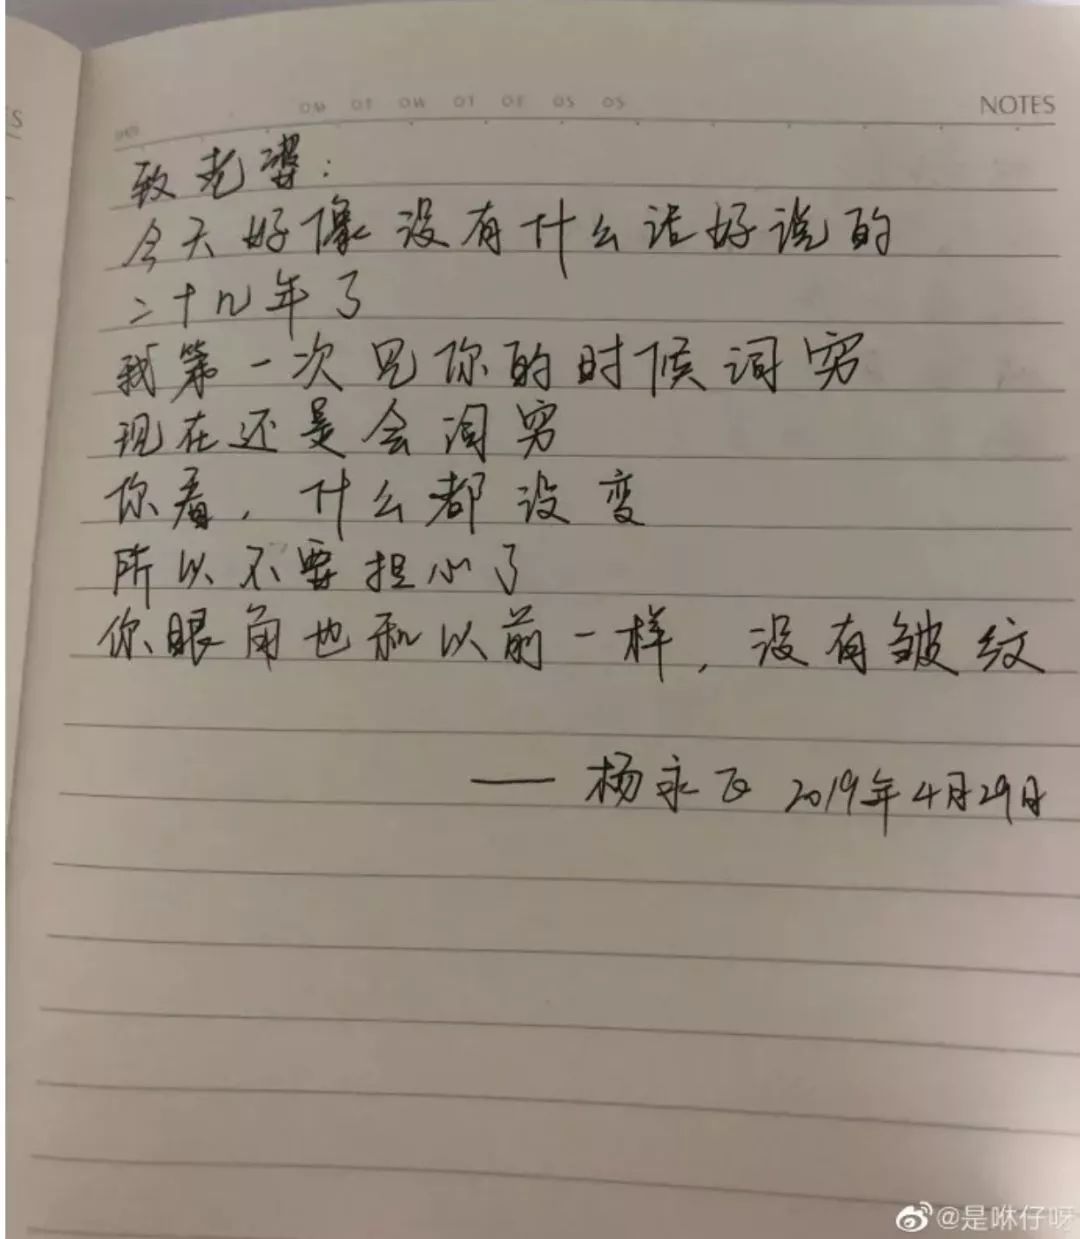 NOTES
致老婆：
今天好像没有什么话好说的
二十九年了
我第一次见你的时候词穷
现在还是会词穷
你看，什么都没变
所以不要担心了
你眼角也和以前一样，没有皱纹
——杨永正 2019年4月29日
@是咻仔呀